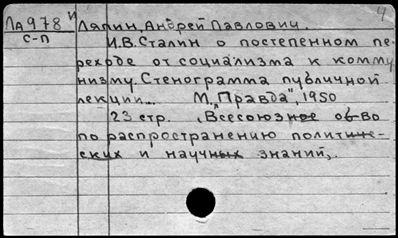 4
Ла978 и Ляпин, Андрей Павлович.
с-п И.В.Сталин о постепенном пе-
реходе от социализма к комму-
низму. Стенограмма публичной
лекции... М., "Правда", 1950
23 стр. (Всесоюзное об-во
по распространению политиче-
ских и научных знаний).